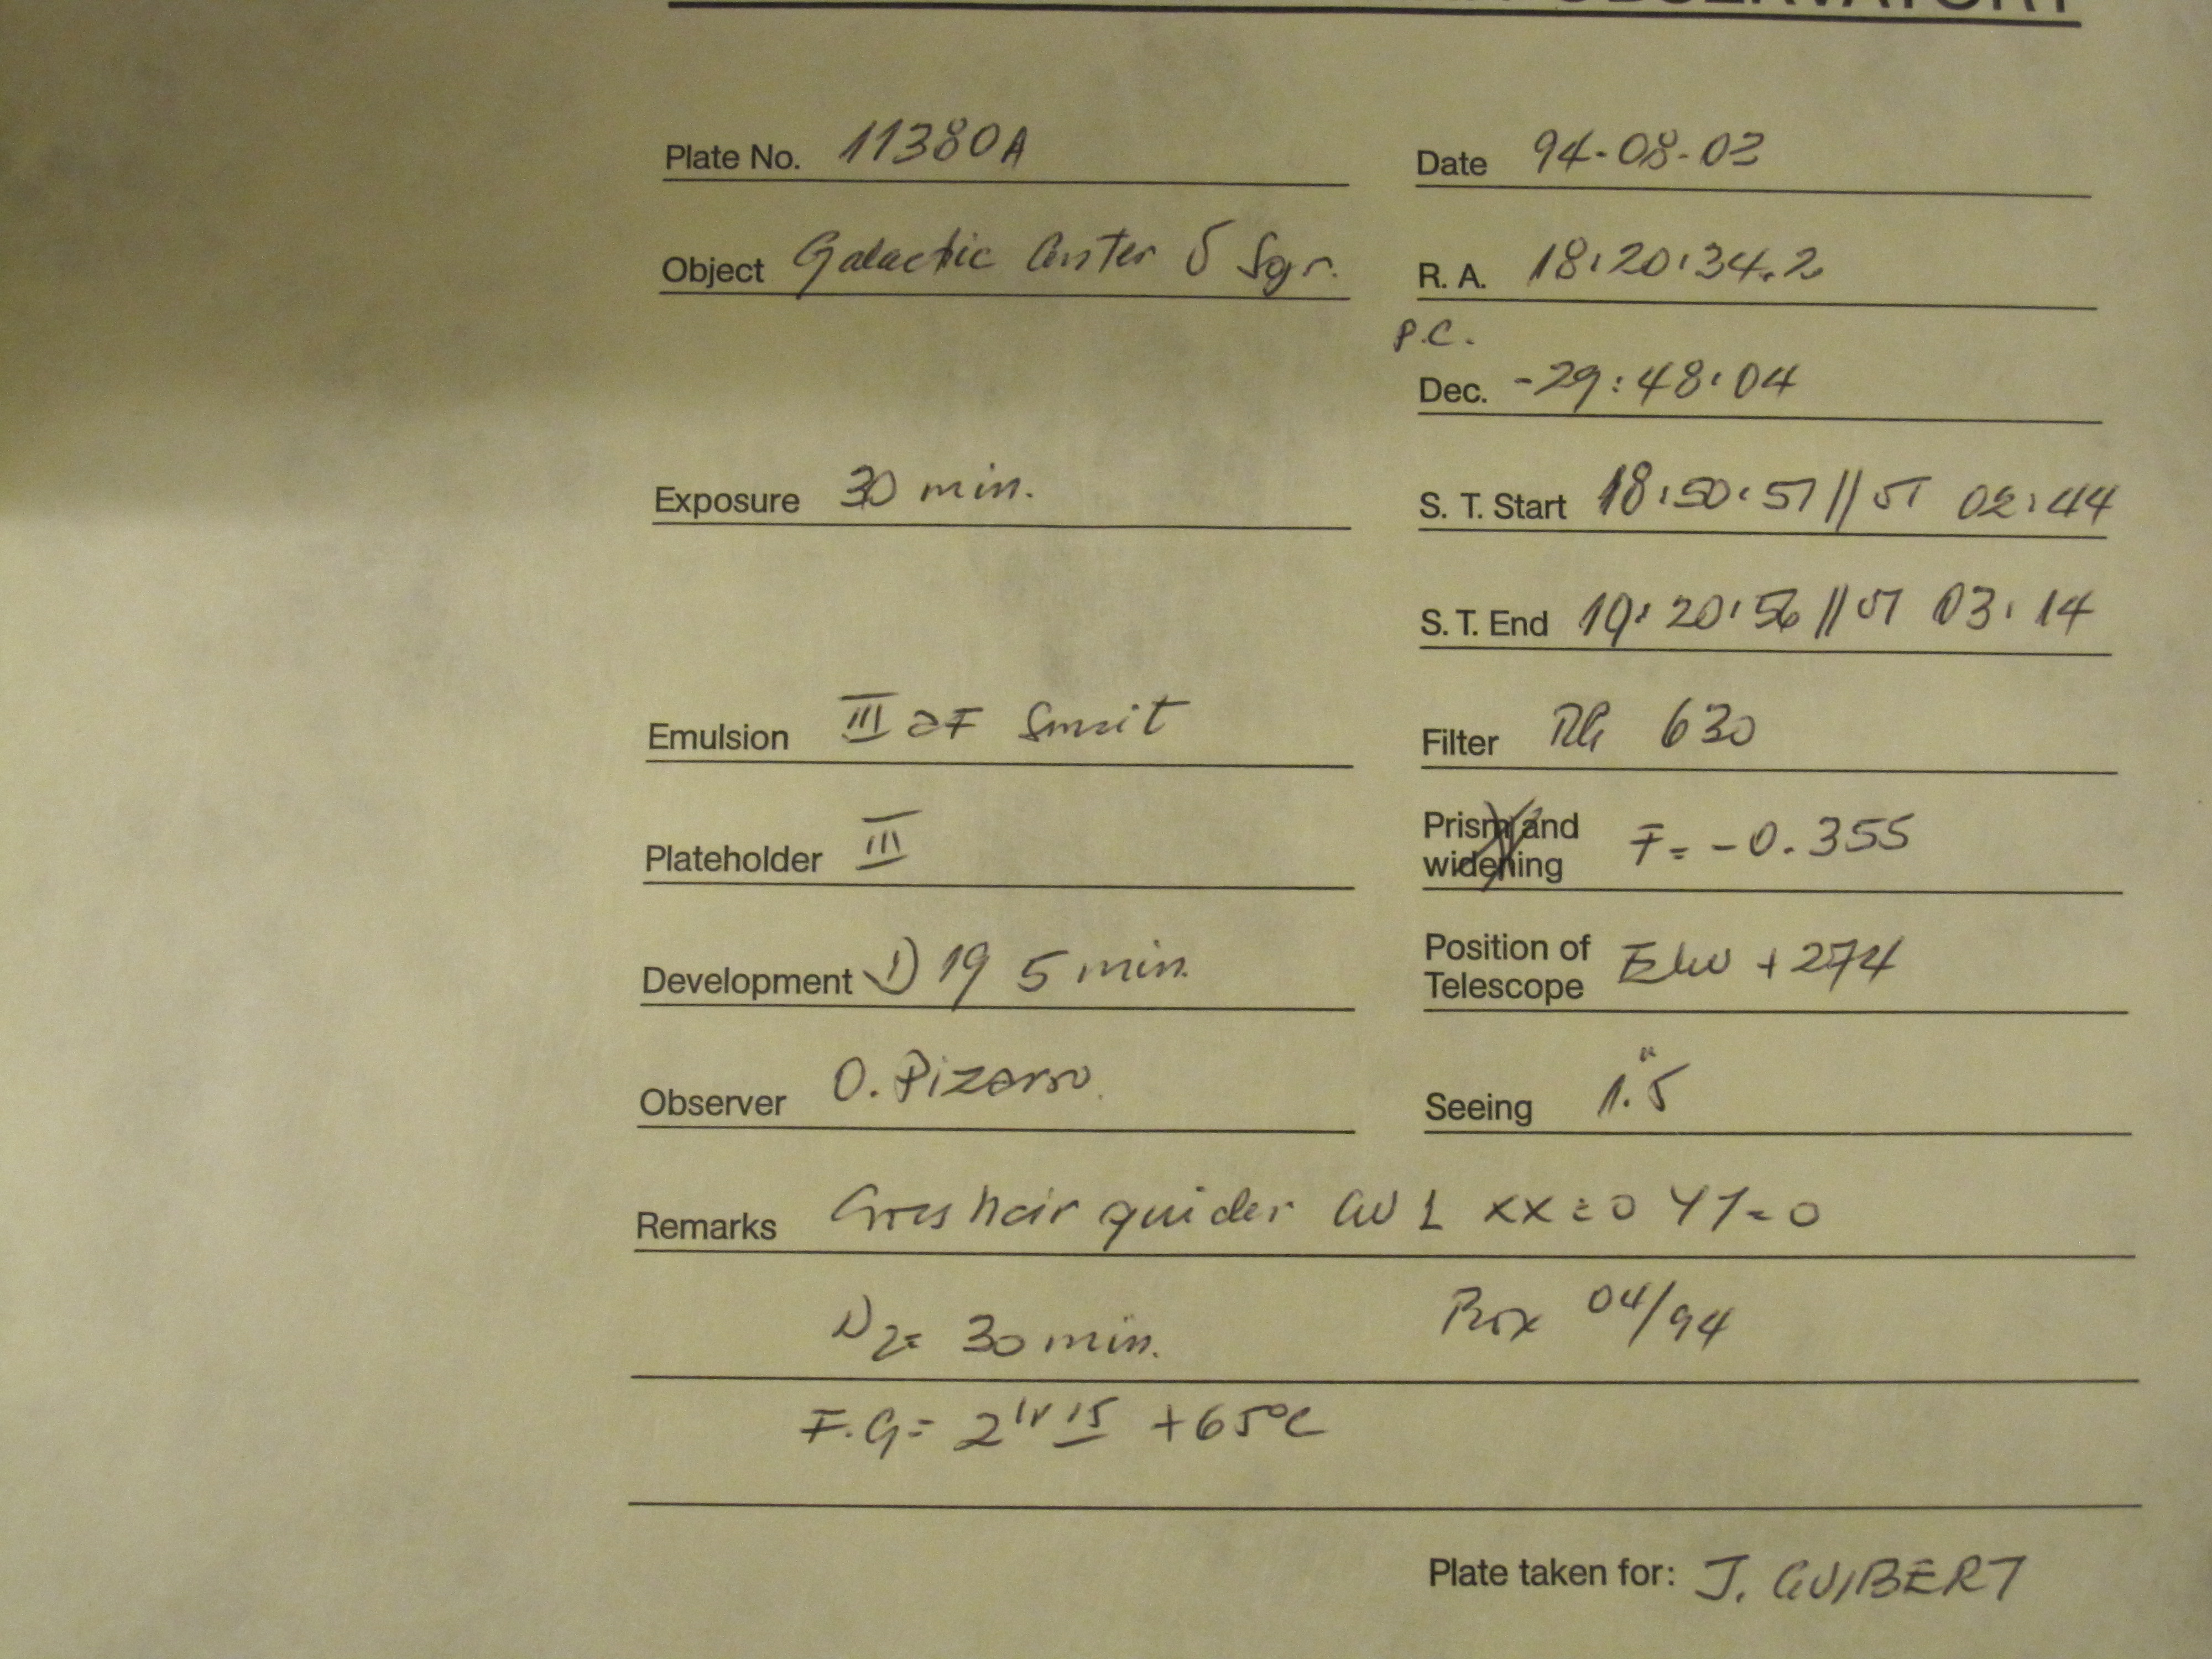 OBSERVATORY
Plate No. 11380A
Date 94-08-03
Object Galactic Center δ Sgr.
R. A. 18:20:34.2
P.C.
Dec. -29:48:04
Exposure 30 min.
S. T. Start 18:50:51 // UT 02:44
S. T. End 19:20:56 // UT 03:14
Emulsion III aF
Filter RG 630
Plateholder III
Prism and
widening F= -0.355
Development D 19 5 min.
Position of
Telescope +274
Observer O. Pizarro.
Seeing 1."5
Remarks Cross hair guider XX=0 YY=0
D2= 30 min. Box 04/94
F.G= +65°C
Plate taken for: J. GUIBERT